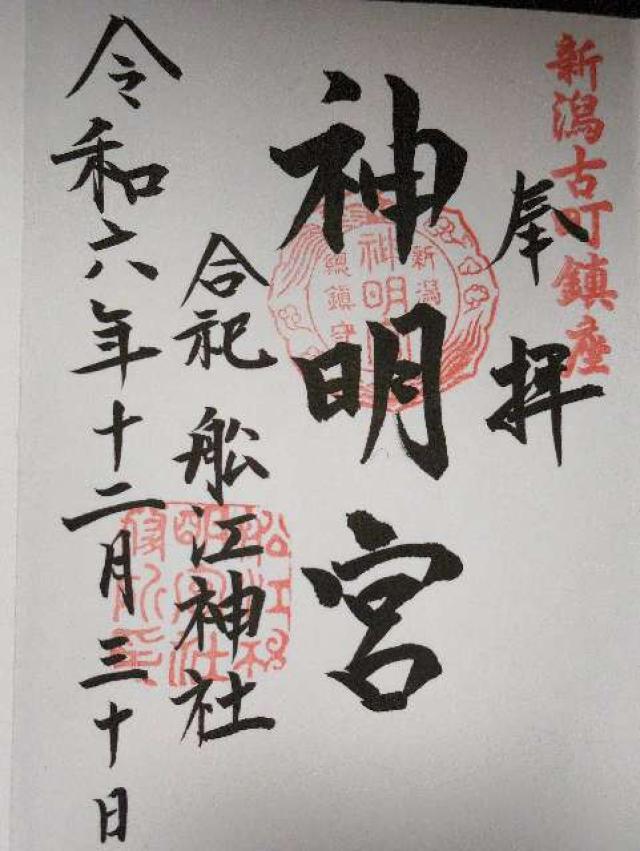 新潟古町鎮座
奉拝
神明宮
新潟
神明宮
總鎮守
合祀 船江神社
令和六年十二月三十日